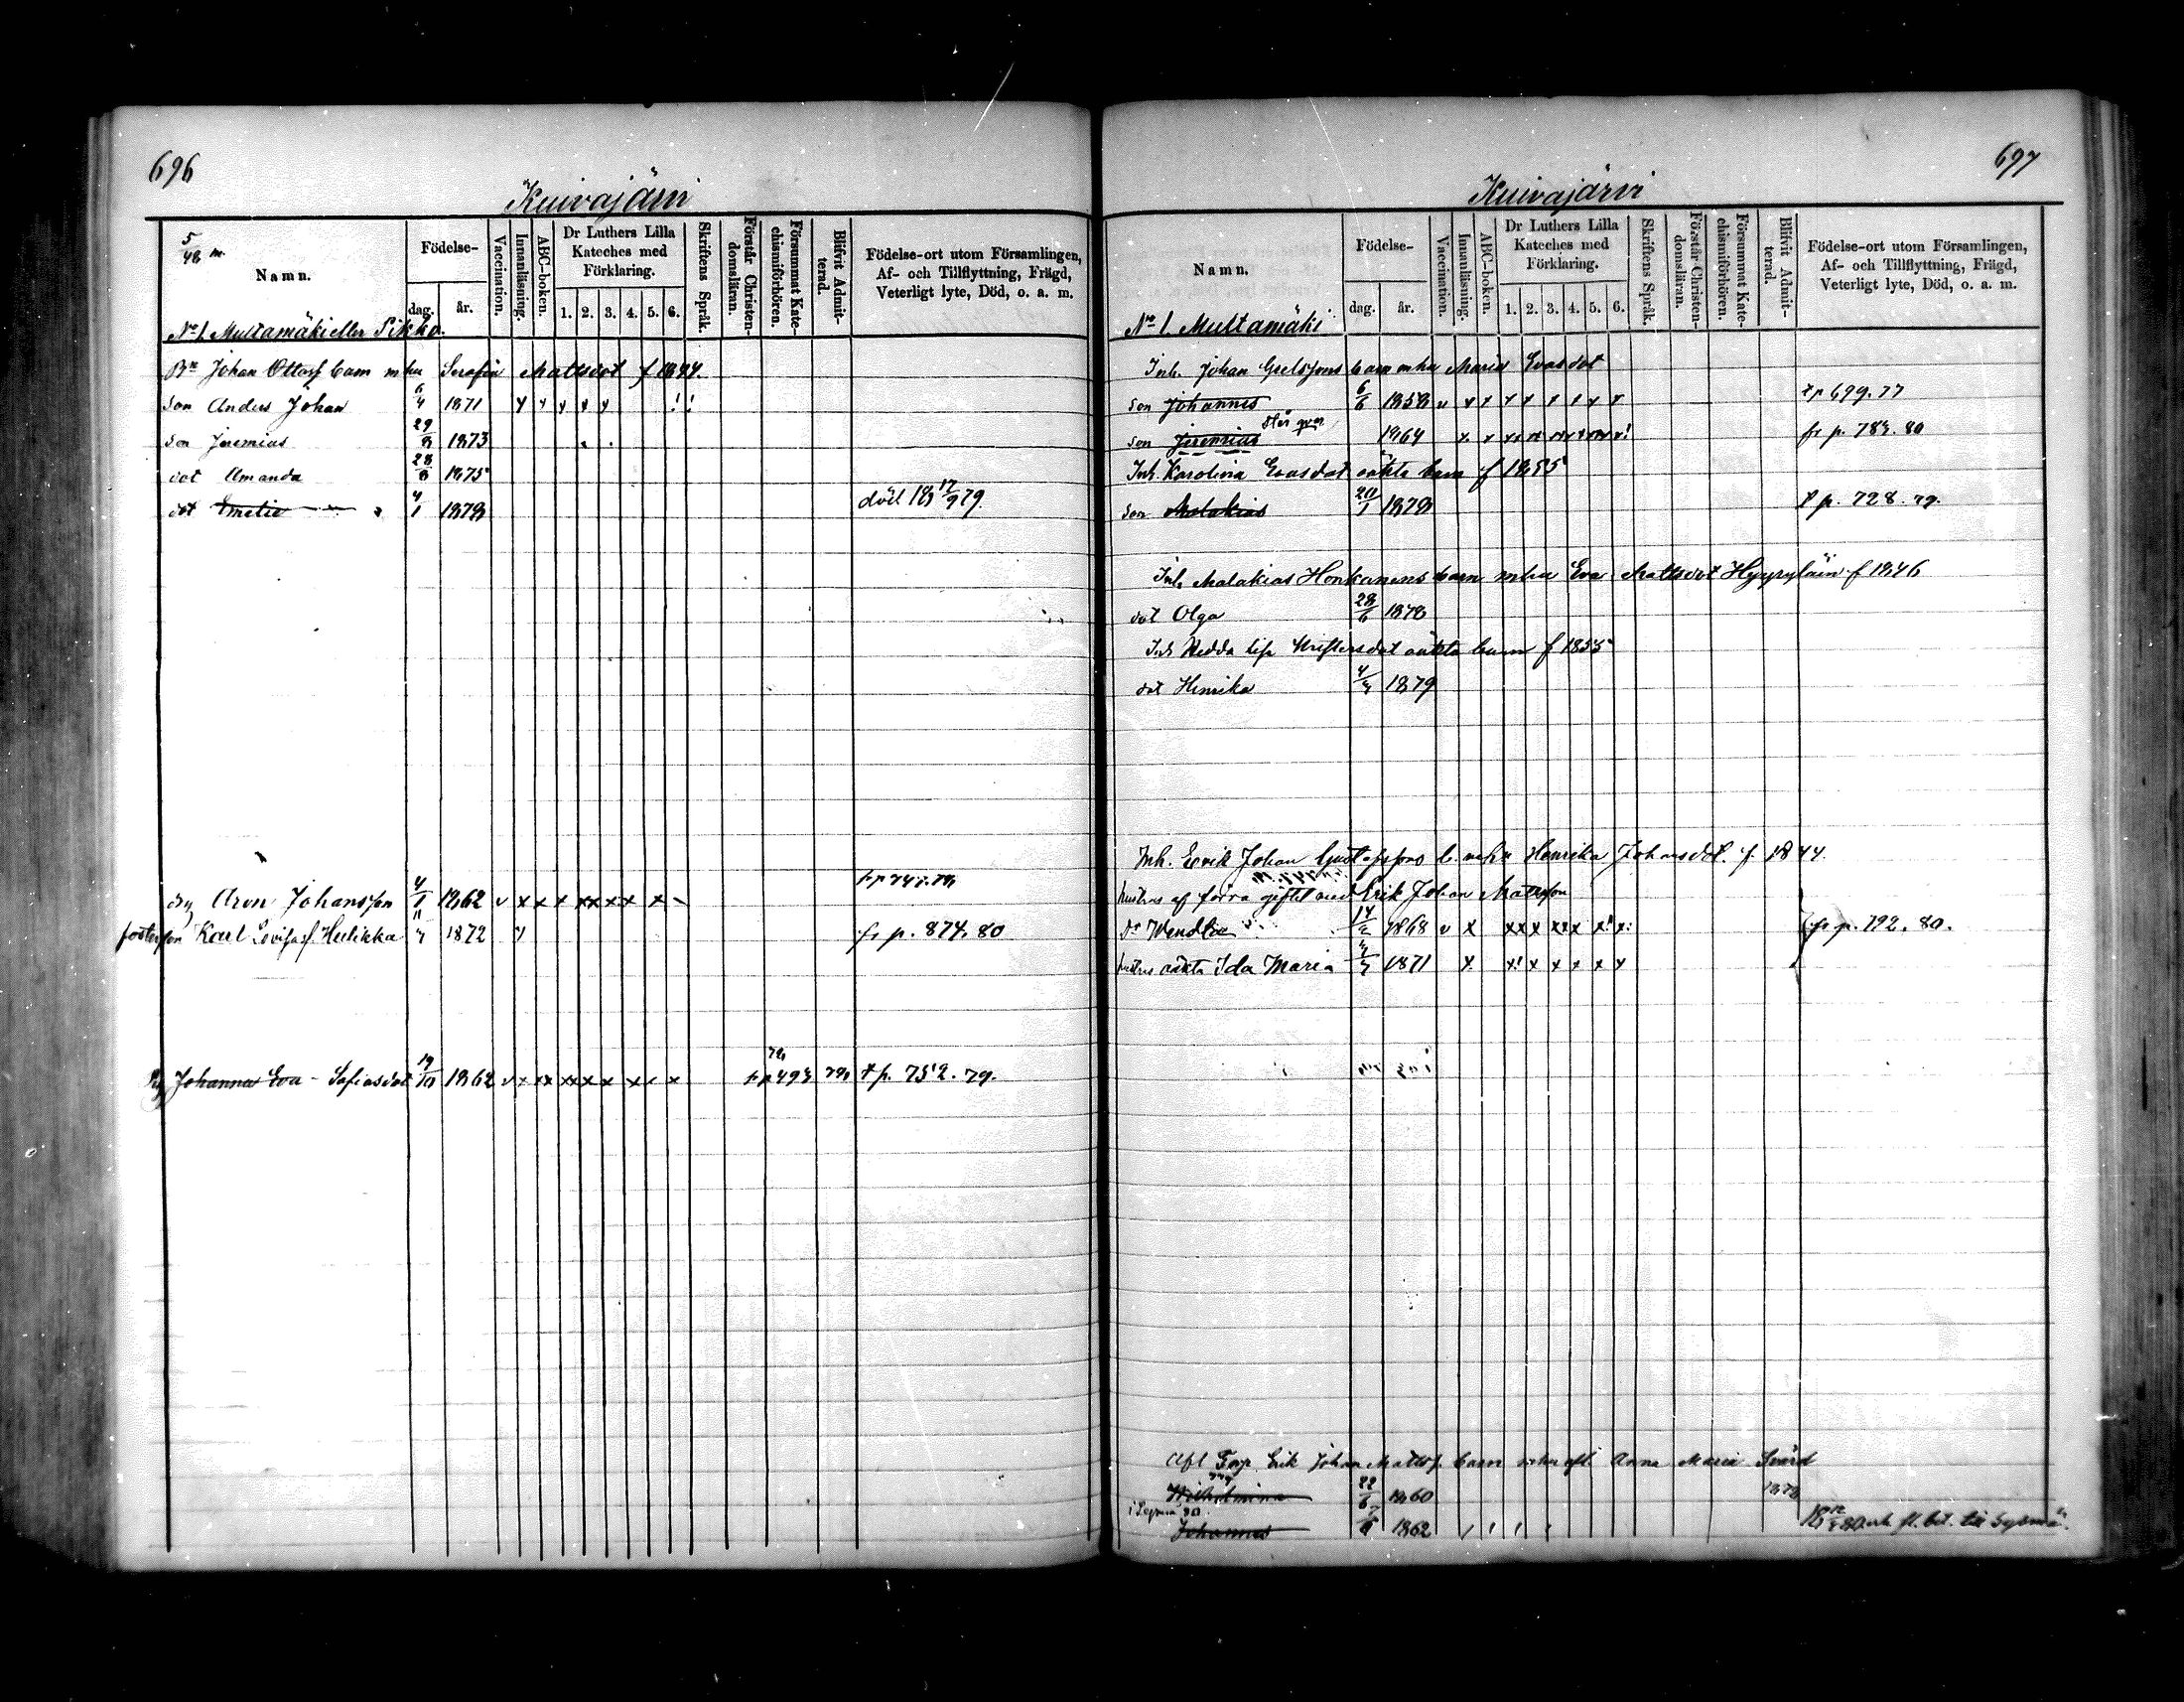 696
Kuivajärvi
5/48 m.
Namn.
Födelse-
dag.
år.
Vaccination.
Innanläsning.
ABC-boken.
Dr Luthers Lilla Kateches med Förklaring.
1. 2. 3. 4. 5. 6.
Skriftens Språk.
Förstår Christen-domsläran.
Försummat Kate-chismiförhören.
Blifvit Admit-terad.
Födelse-ort utom Församlingen,
Af- och Tillflyttning, Frägd,
Veterligt lyte, Död, o. a. m.
No 1. Multamäki eller Sikko.
Bn Johan Ottoss barn mhu Serafia Mattsdot f 1844.
Son Anders Johan 6/4 1871
son Jeremias 29/8 1873
dot Amanda 28/8 1875
dot Emelie 4/1 1878 död 18 17/9 79.
dry Aron Johansson 4/1 1862
fosterson Karl Lovisas. Hulikka 11/7 1872 fr p. 874. 80
Johanna Eva-Sofiasdot 19/10 1862 p 493 79 t p. 752. 79.
697
Kuivajärvi
Namn.
Födelse-
dag.
år.
Vaccination.
Innanläsning.
ABC-boken.
Dr Luthers Lilla Kateches med Förklaring.
1. 2. 3. 4. 5. 6.
Skriftens Språk.
Förstår Christen-domsläran.
Försummat Kate-chismiförhören.
Blifvit Admit-terad.
Födelse-ort utom Församlingen,
Af- och Tillflyttning, Frägd,
Veterligt lyte, Död, o. a. m.
No 1. Multamäki
Inh. Johan barn mhu Maria Evasdot
son Johannes 6/6 1858 t p 699. 77
son Jeremias 1864 fr p. 783. 80
Inh. Karolina Evasdot oäkta barn f 1855
son Malakias 20/1 1878 t p. 728. 79.
Inh. Malakias Honkanens barn mhu Eva Mattsdot Hyyryläin f 1846
dot Olga 28/6 1878
Inh Hedda Lisa oäkta barn f 1855
dot Henrika 1879
Inh. Erik Johan Gustafssons b. mhu Henrika Johansdot. f. 1844.
hustrus af förra giftet med Erik Johan Mattsson
Dr Wendla 14/2 1868 fr p. 792. 80.
hustrus oäkta Ida Maria 1871
Afl Torp. Erik Johan Mattss. barn mhu afl. Anna Maria Svärd
Wilhelmina 22/6 1860 1878
i Sysmä 80.
Johannes 1862 fl. bet. till Sysmä